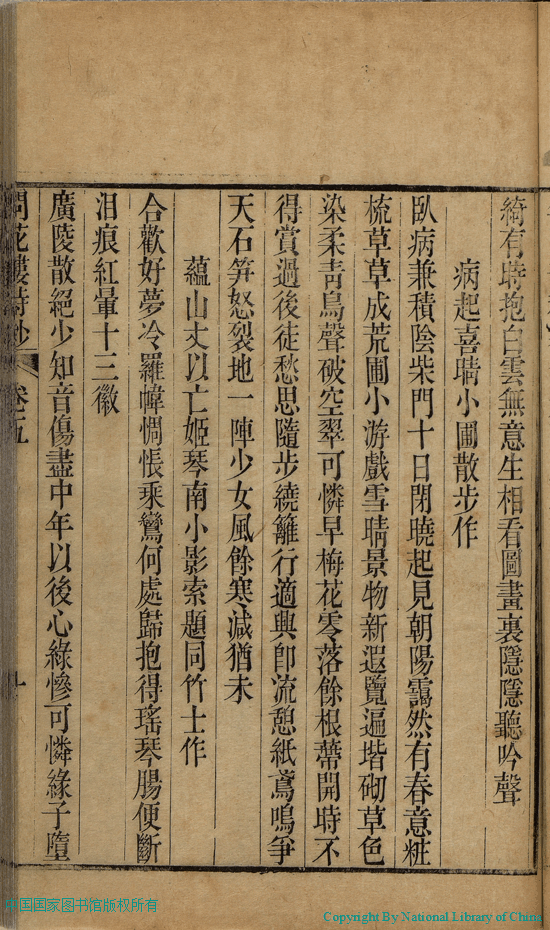 綺有時抱白雲無意生相看圖畫裏隱隱聽吟聲
病起喜晴小圃散步作
臥病兼積陰柴門十日閉曉起見朝陽靄然有春意粧
梳草草成荒圃小游戲雪晴景物新遐覽遍堦砌草色
染柔靑鳥聲破空翠可憐早梅花零落餘根蔕開時不
得賞過後徒愁思隨步繞籬行適興卽流憩紙鳶鳴爭
天石笋怒裂地一陣少女風餘寒減猶未
蘊山丈以亡姬琴南小影索題同竹士作
合歡好夢冷羅幃惆悵乘鸞何處歸抱得瑤琴腸便斷
泪痕紅暈十三徽
廣陵散絕少知音傷盡中年以後心綠慘可憐緣子墮
問花樓詩鈔 卷五 十
中国国家图书馆版权所有
Copyright By National Library of China